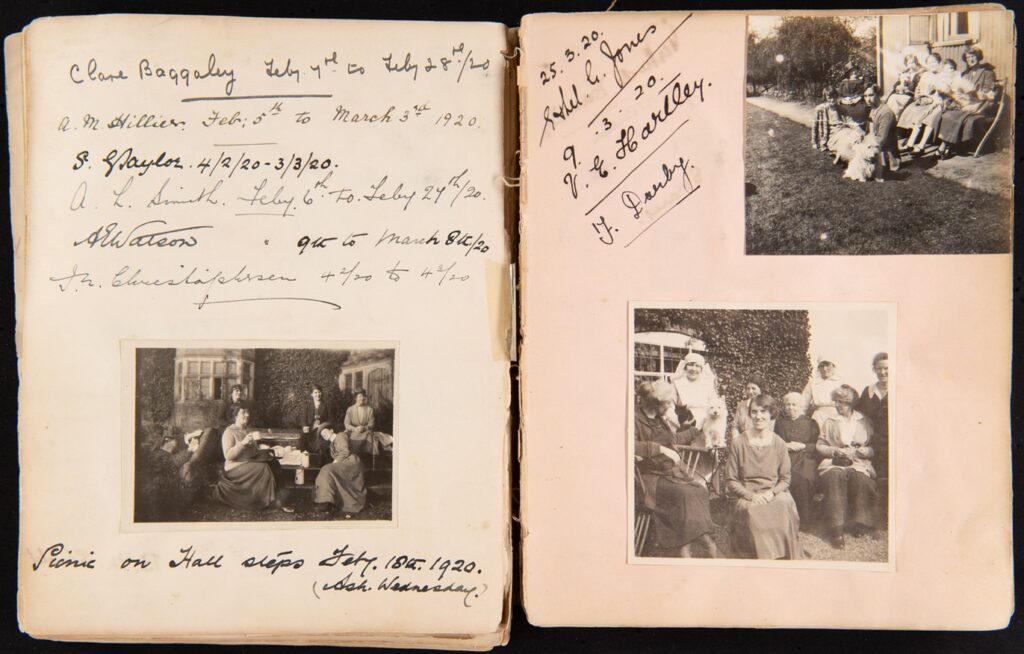 Clare Baggaley Feby. 7th to Feby 28th/20
A. M. Hillier. Feb: 5th to March 3rd 1920.
S. G Taylor. 4/2/20-3/3/20.
A. L. Smith. Feby. 6th to Feby 27th/20.
A E Watson " 9th to March 8th/20
Christophersen 4 2/20 to 4 3/20
Picnic on Hall steps Feby. 18th. 1920.
(Ash. Wednesday.)
25.3.20.
Ethel G. Jones
9.3.20.
V. E. Hartley.
F. Darby.